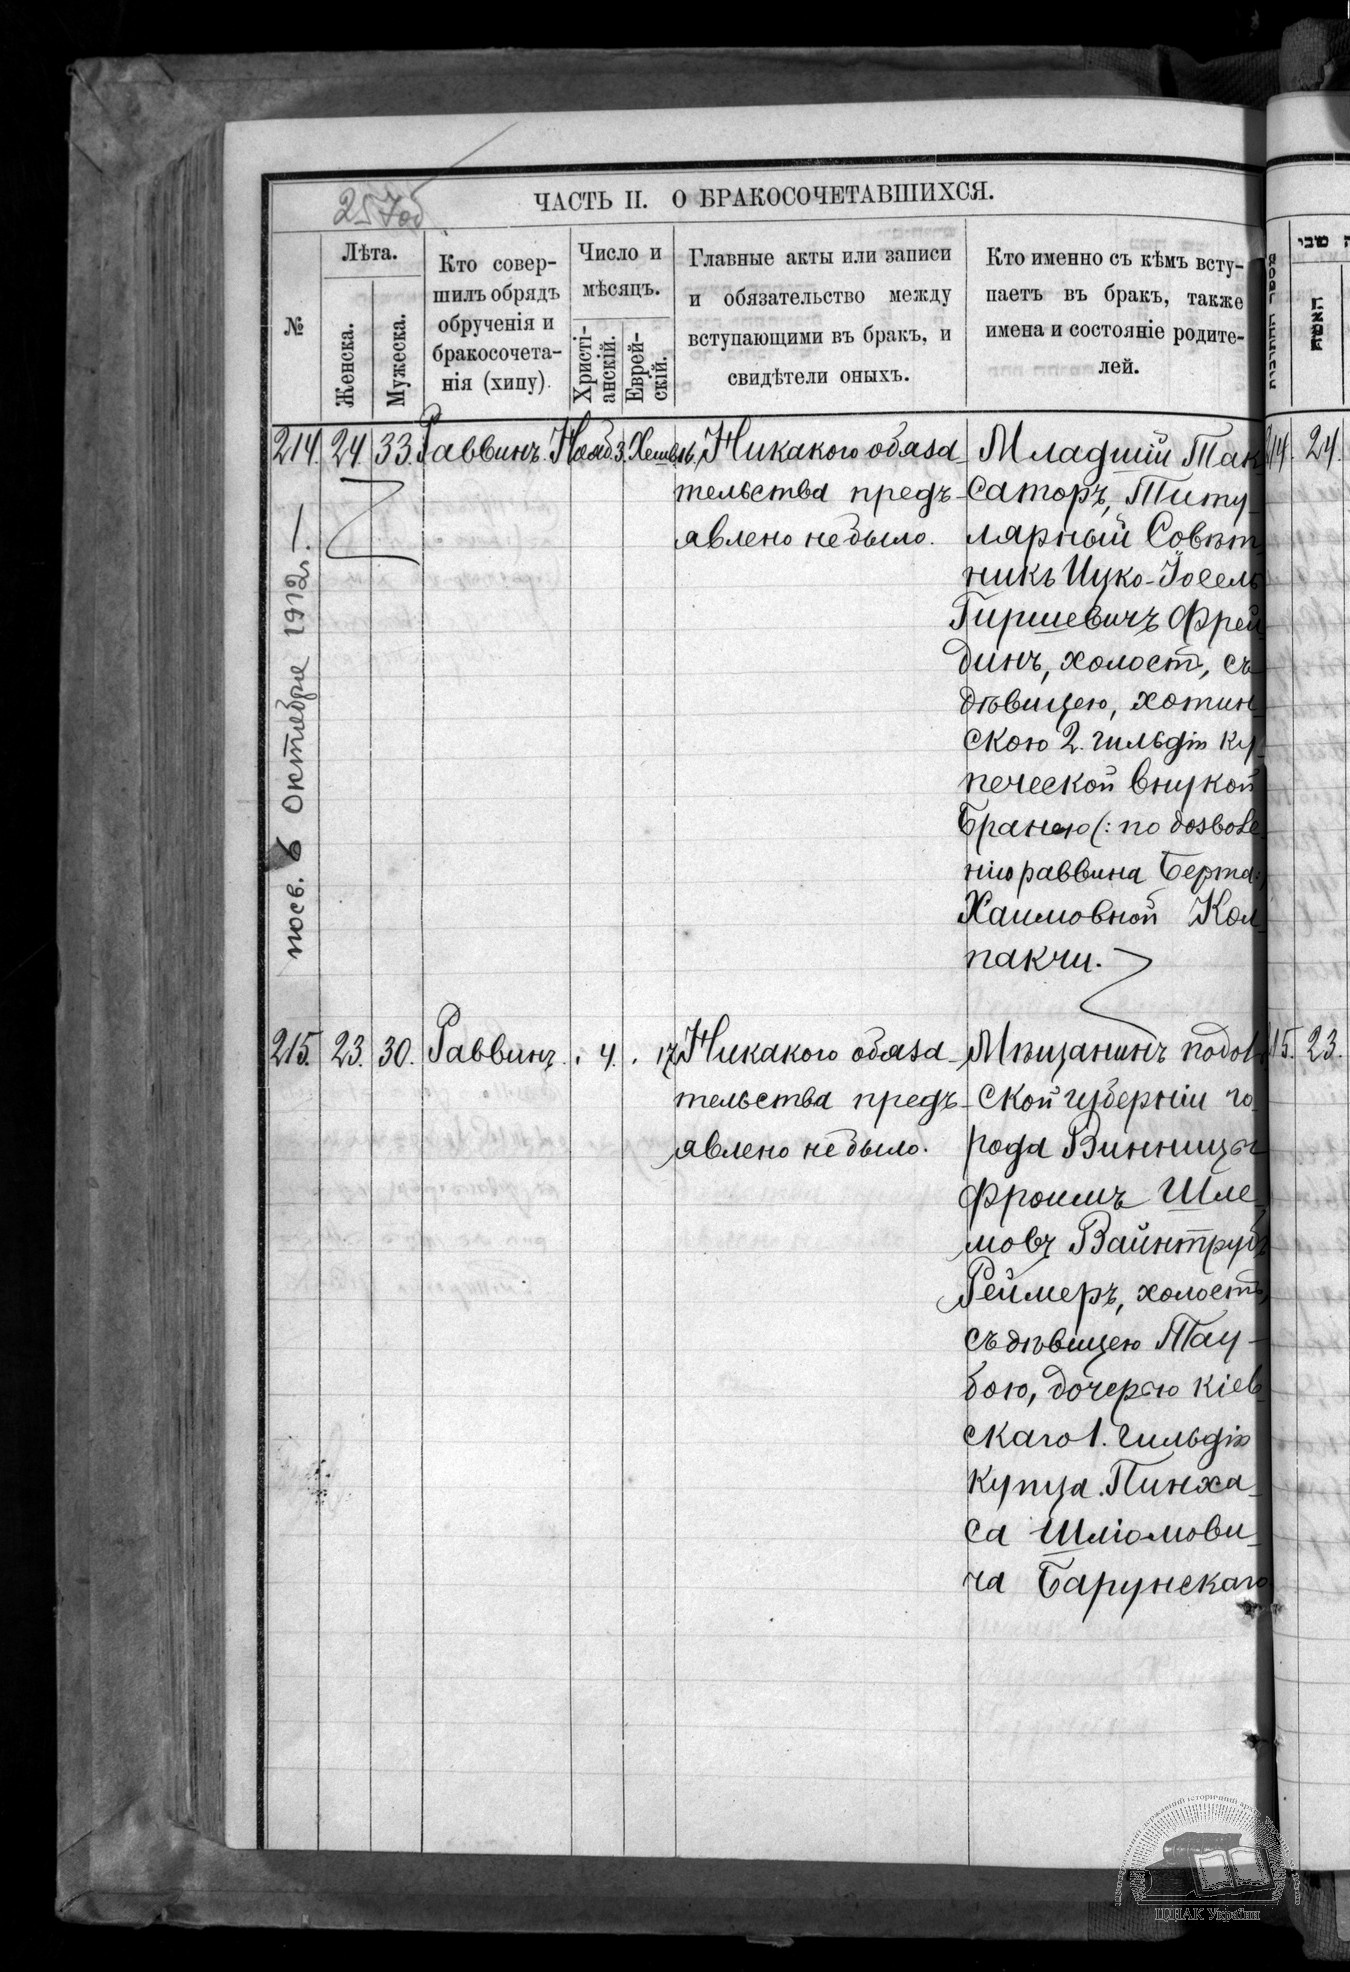 257об
ЧАСТЬ II. О БРАКОСОЧЕТАВШИХСЯ.
№
Лѣта.
Женска.
Мужеска.
Кто совер-
шилъ обрядъ
обрученія и
бракосочета-
нія (хипу).
Число и
мѣсяцъ.
Христі-
анскій.
Еврей-
скій.
Главные акты или записи
и обязательство между
вступающими въ бракъ, и
свидѣтели оныхъ.
Кто именно съ кѣмъ всту-
паетъ въ бракъ, также
имена и состояніе родите-
лей.
214. 24. 33. Раввинъ. Нояб. 3. Хешв. 16. Никакого обяза-
тельства предъ-
явлено не было.
Младшій Так
саторъ, Титу-
лярный Совѣт
никъ Ицко-Іосель
Гиршевичъ Фрей
динъ, холост, съ
дѣвицею, хотин
скою 2. гильдіи ку
печеской внукой
Бранею (: по дозволе
нію раввина Берта:)
Хаимовной Кол
пакчи.
посв. 6 Октября 1912 г.
215. 23. 30. Раввинъ. " 4. " 17. Никакого обяза-
тельства предъ-
явлено не было.
Мѣщанинъ подол
ской губерніи го-
рода Винницы
Фроимъ Шле-
мовъ Вайнтрубъ
Реймеръ, холостъ,
съ дѣвицею Тау-
бою, дочерью кіев
скаго 1. гильдіи
купца Пинха-
са Шліомови-
ча Барунскаго
שבי
האשה
214. 24.
215. 23.
ЦНАК України